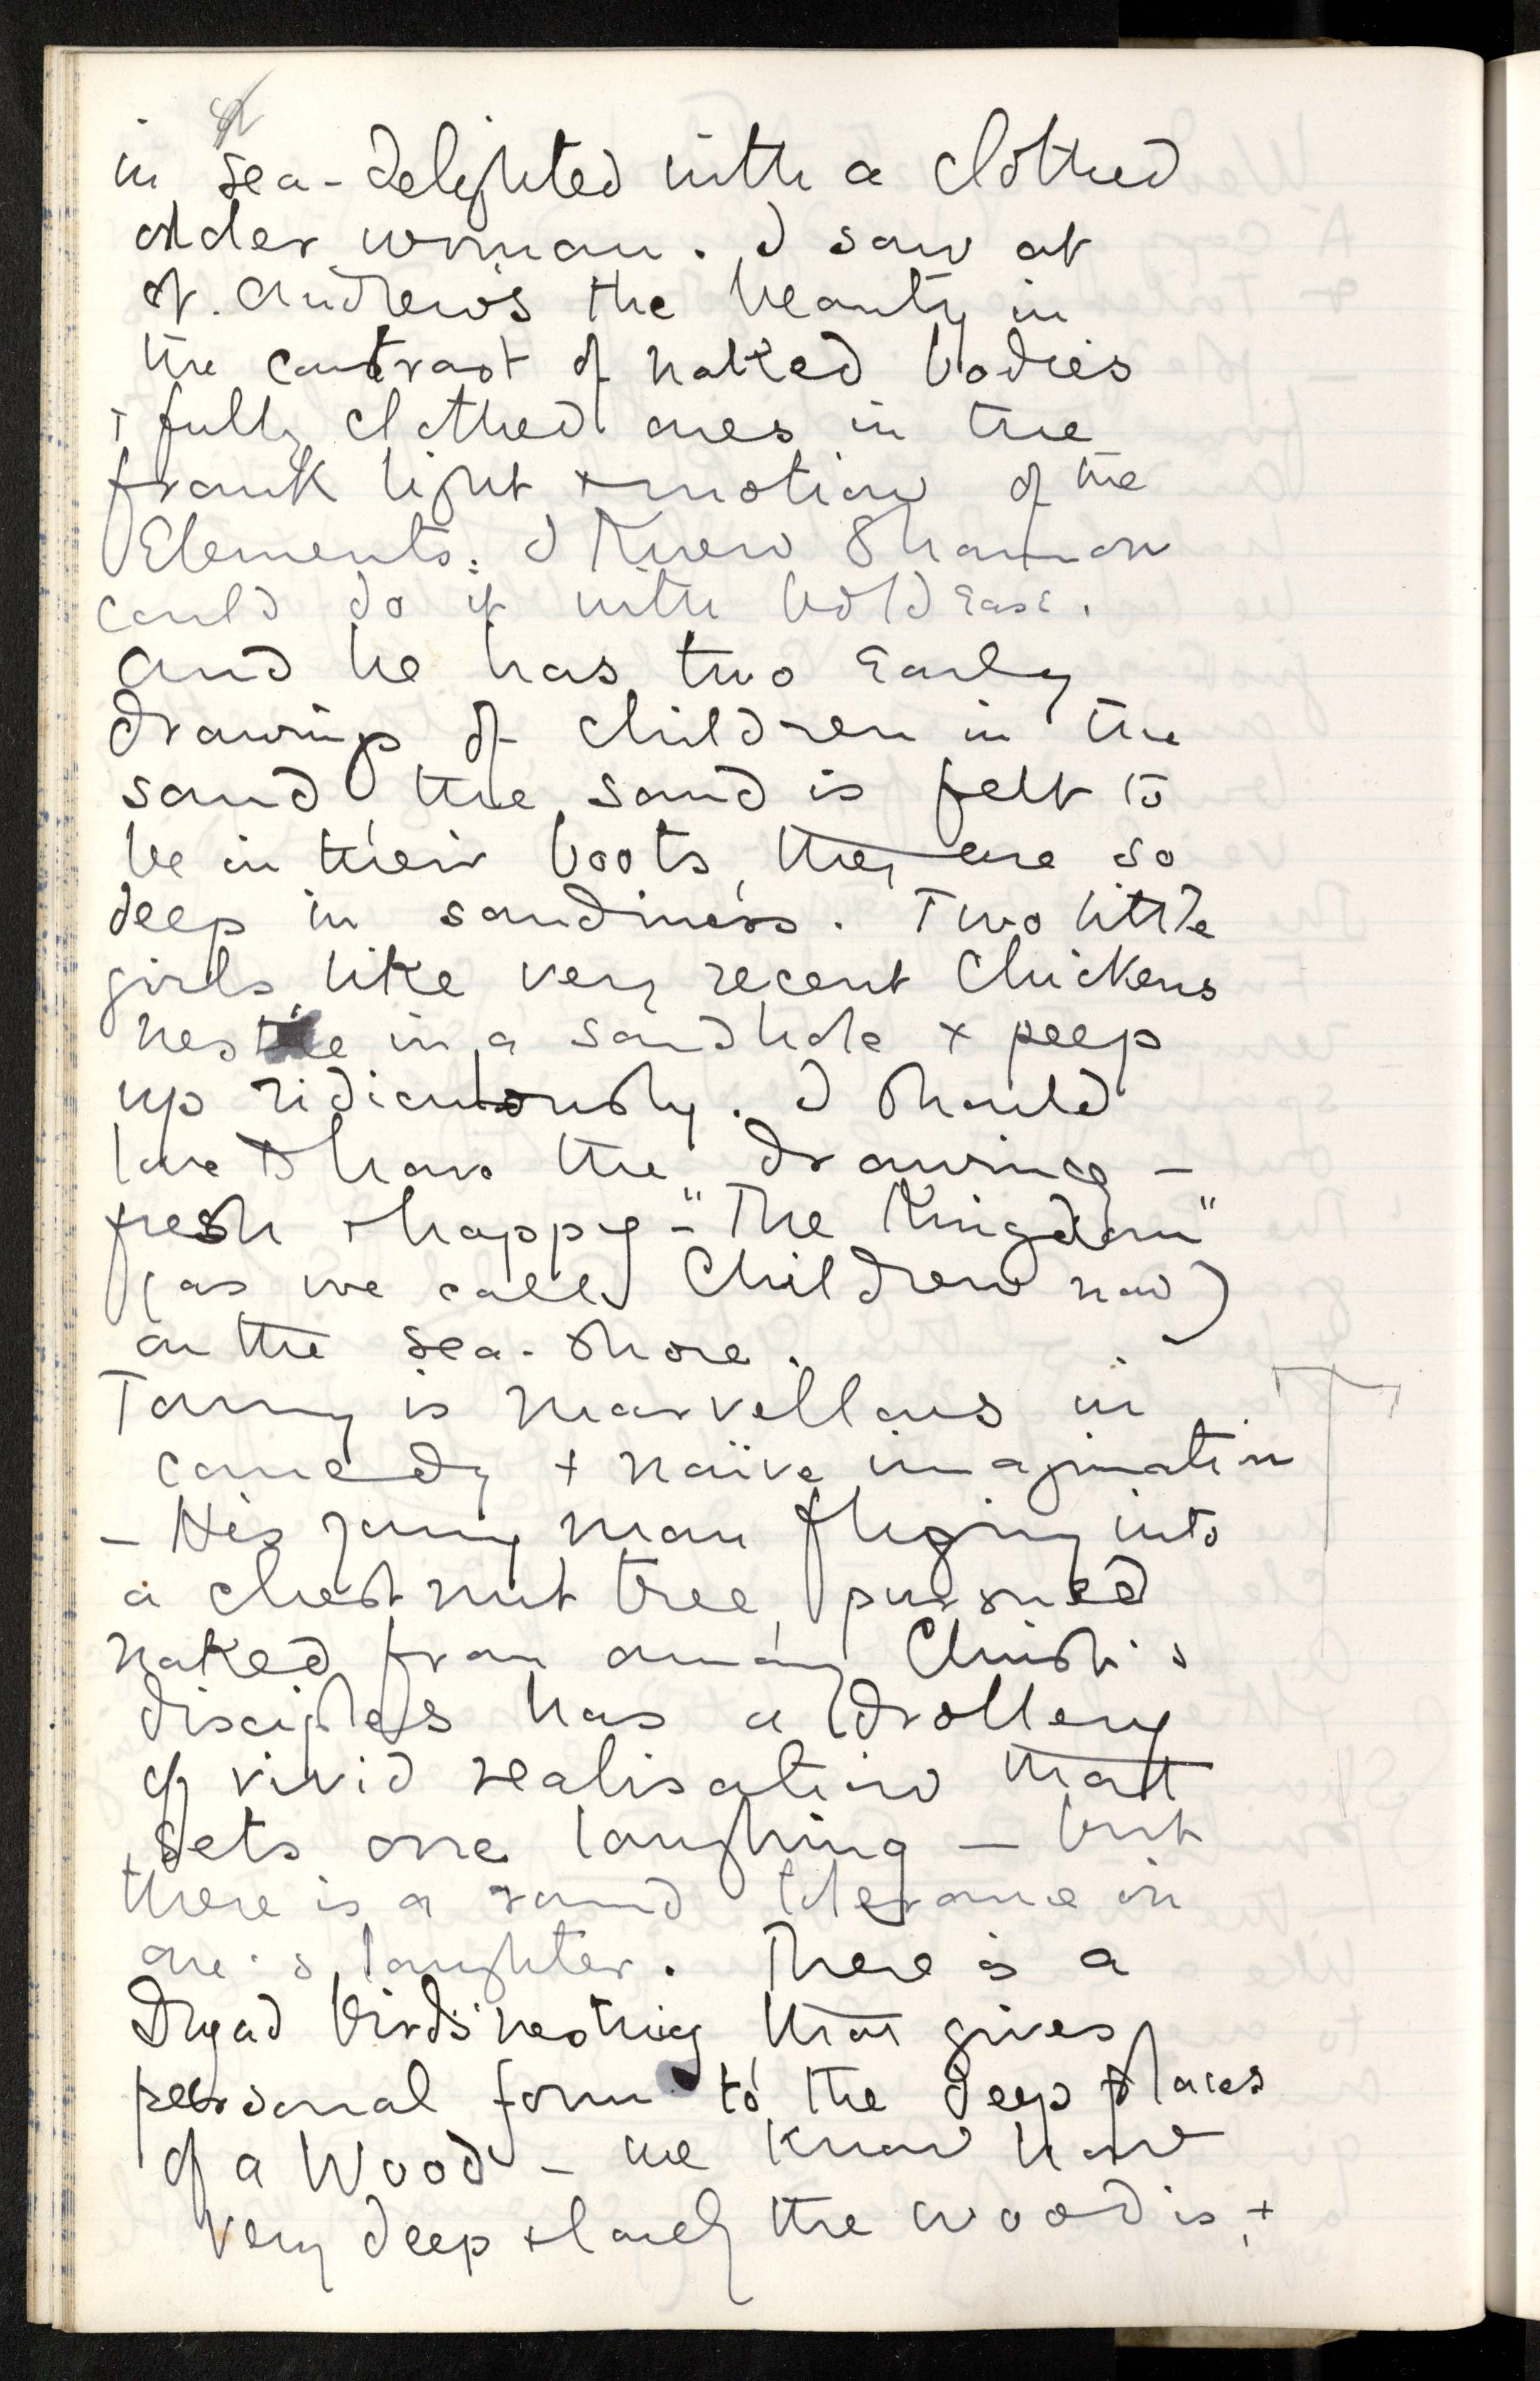 in sea-delighted with a clothed
older woman. I saw at
St. Andrew's the beauty in
the contrast of naked bodies
+ fully clothed ones in the
frank light + motion of the
Elements: I knew Shannon
could do it with bold ease.
And he has two early
drawings of children in the
sand, the sand is felt to
be in their boots, they are so
deep in sandiness. Two little
girls, like very recent chickens
nestle in a sandhole + peep
up ridiculously. I should
love to have the drawing –
fresh + happy – "The Kingdom"
(as we call Children now)
on the sea-shore.
Tommy is marvellous in
comedy + naïve imagination
– His young man flying into
a chestnut tree, pursued
naked from among Christ's
disciples has a drollery
of vivid realisation that
sets one laughing – but
there is a round tolerance in
one's laughter. There is a
Dryad birds' nesting that gives
personal form to the deep places
of a Wood – we know how
very deep + lonely the wood is, +